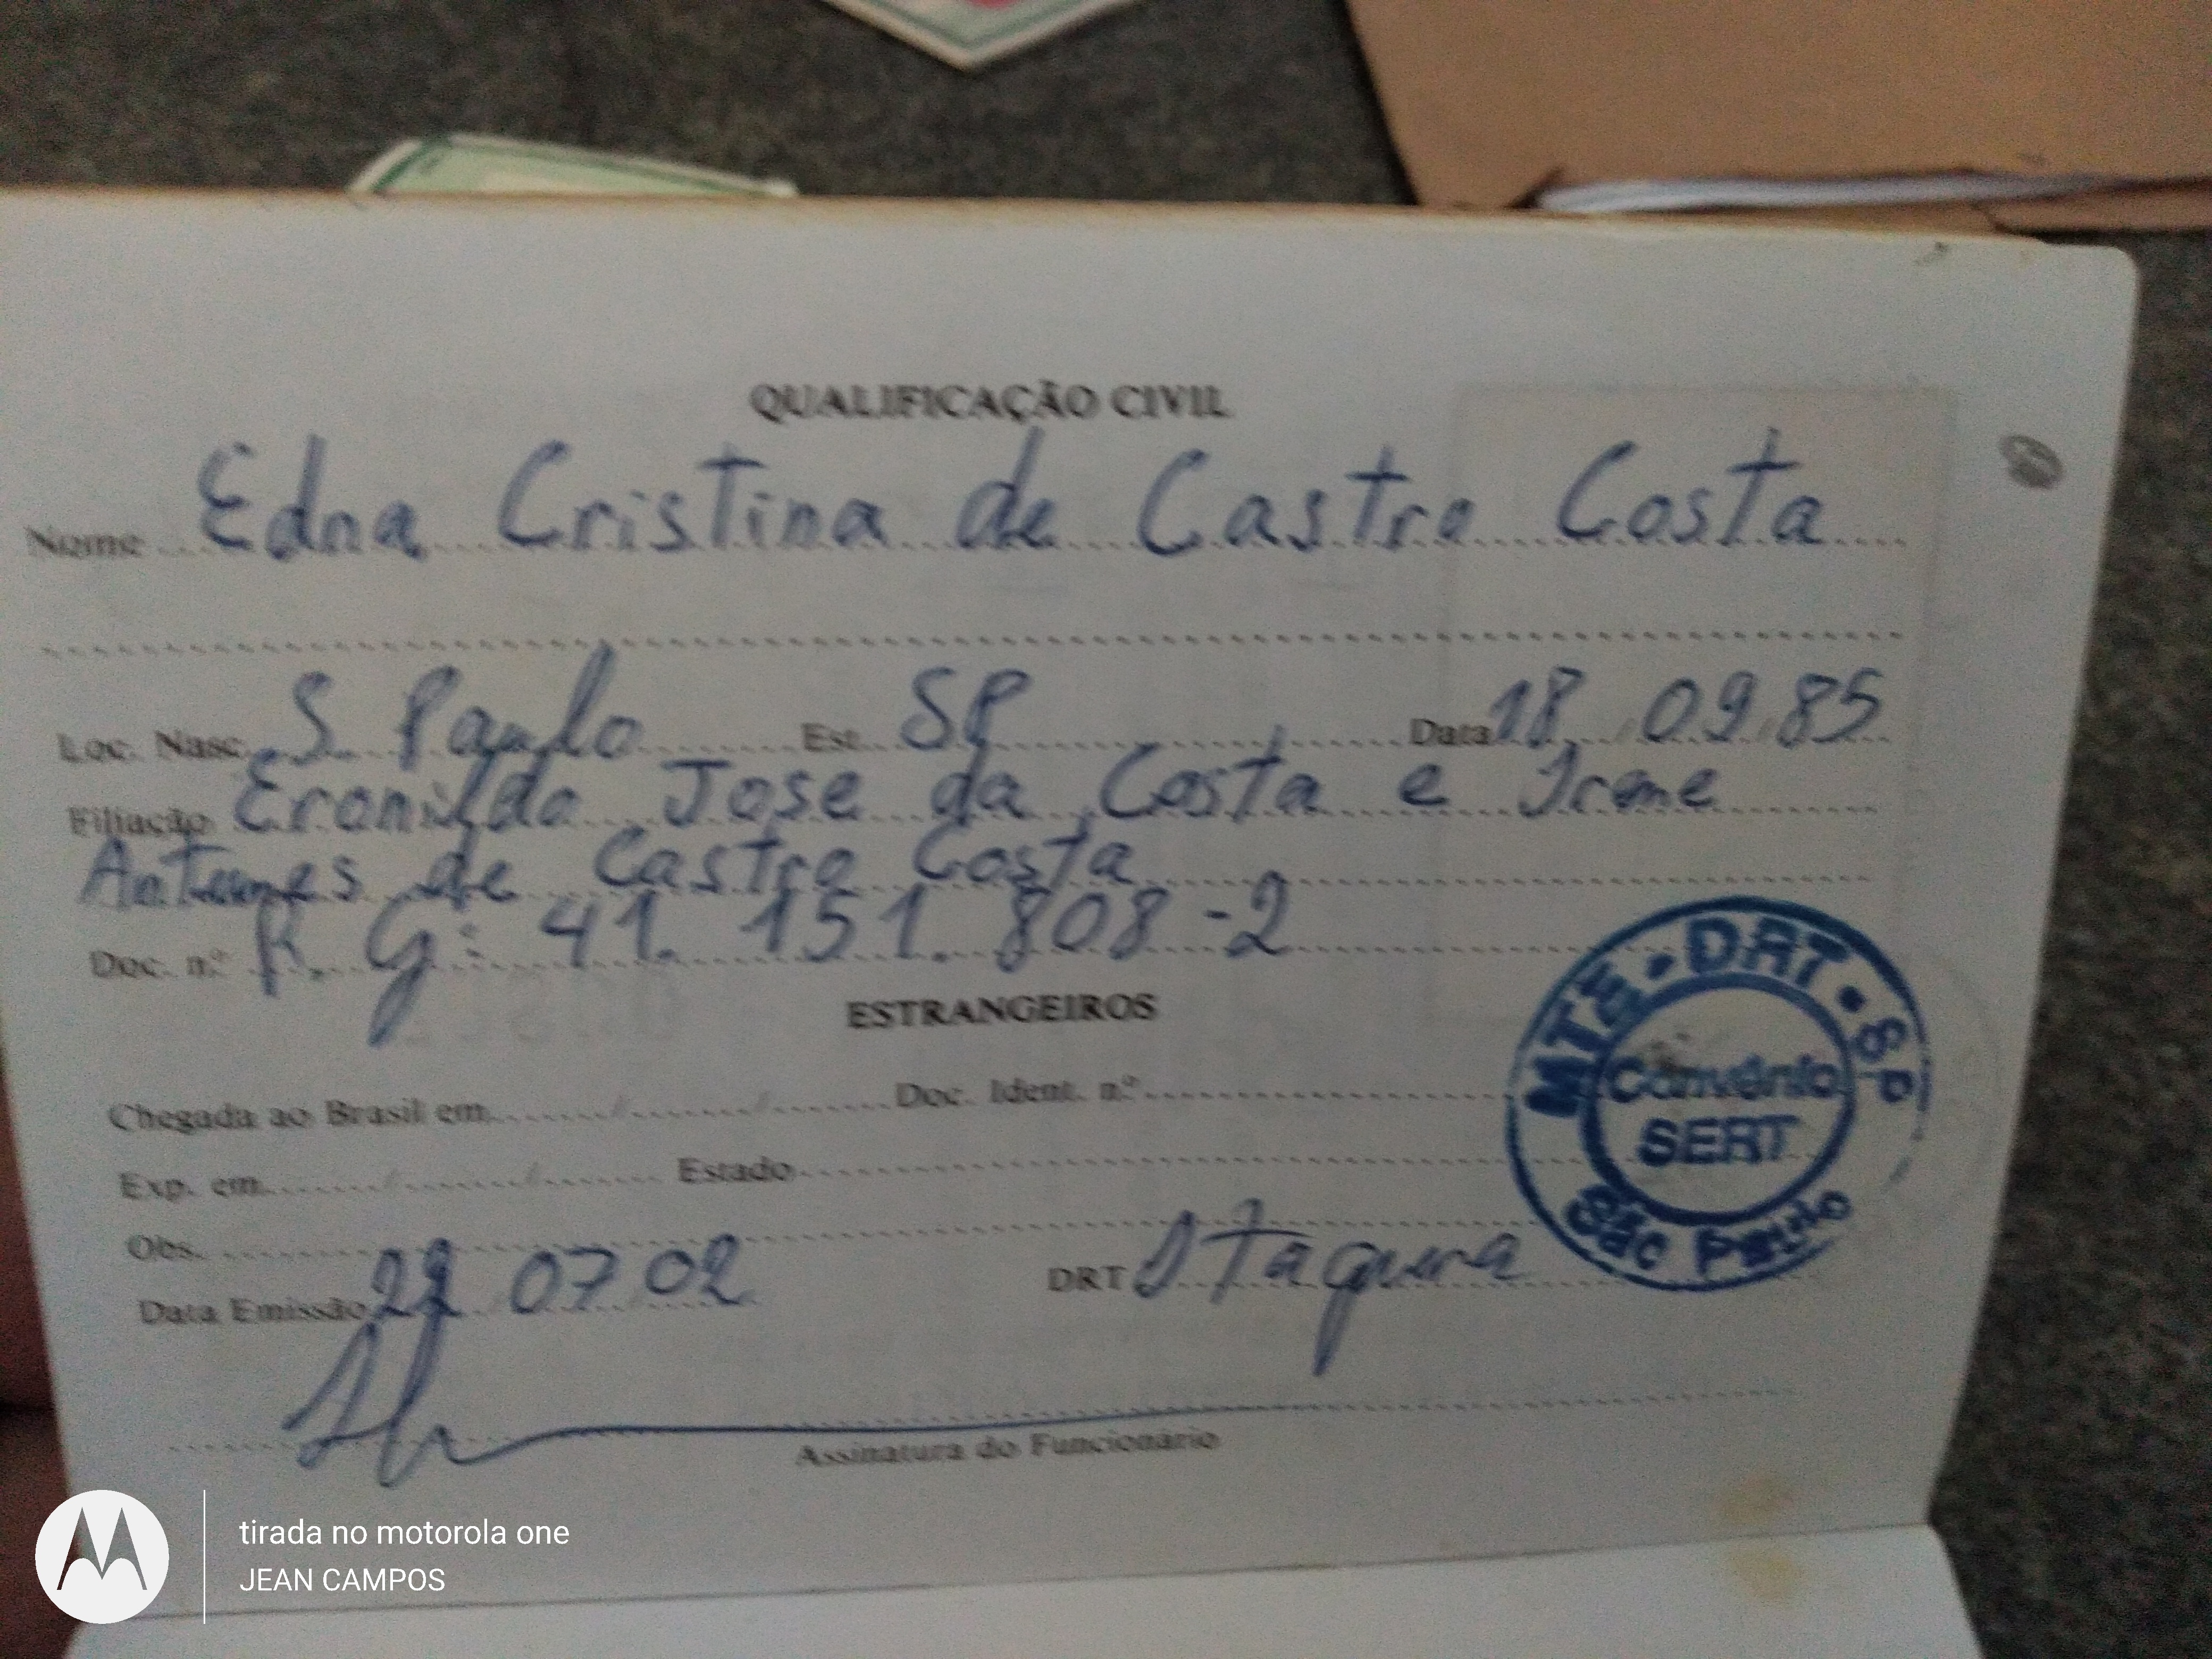 QUALIFICAÇÃO CIVIL
Nome Edna Cristina de Castro Costa
Loc. Nasc. S. Paulo Est. SP Data 18 09 85
Filiação Eronildo Jose da Costa e Irene
Antunes de Castro Costa
Doc. n.º R. G: 41. 151. 808-2
ESTRANGEIROS
Chegada ao Brasil em / / Doc. Ident. n.º
Exp. em / / Estado
Obs.
Data Emissão 07 02 DRT Itaquera
Assinatura do Funcionário
MTE • DRT • SP
Convênio
SERT
São Paulo
tirada no motorola one
JEAN CAMPOS